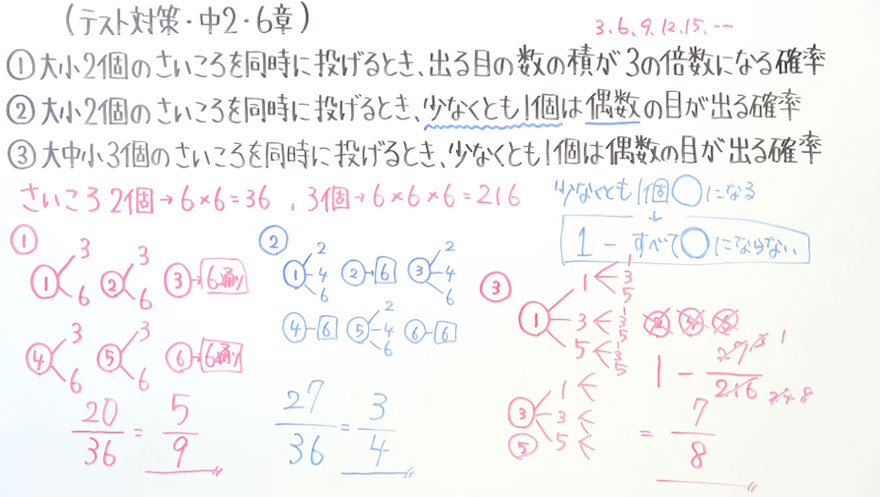 (テスト対策・中2・6章)
3、6、9、12、15、…
①大小2個のさいころを同時に投げるとき、出る目の数の積が3の倍数になる確率
②大小2個のさいころを同時に投げるとき、少なくとも1個は偶数の目が出る確率
③大中小3個のさいころを同時に投げるとき、少なくとも1個は偶数の目が出る確率
さいころ2個→6×6=36、3個→6×6×6=216
少なくとも1個○になる
↓
1-すべて○にならない
①
① 3 6
② 3 6
③→6通り
④ 3 6
⑤ 3 6
⑥→6通り
20/36=5/9
②
① 2 4 6
②→6
③ 2 4 6
④-6
⑤ 2 4 6
⑥-6
27/36=3/4
③
① 1 1 3 5
3 1 3 5
5 1 3 5
② ④ ⑥
③ 1 3 5
⑤
1-27/216 3 1 24 8
=7/8